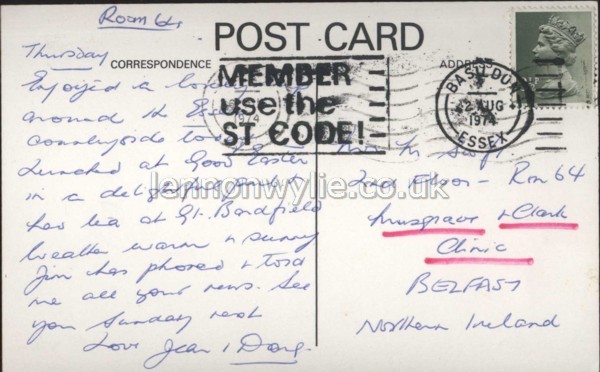 Room 64
POST CARD
CORRESPONDENCE
ADDRE
MEMBER
use the
ST CODE!
BASILDON
2 AUG
1974
ESSEX
Thursday
Enjoyed a lovely
around the
countryside to
Lunched at Good Easter
in a delightful
has tea at Gt. Bardfield
Weather warm & sunny
Jim has phoned & told
me all your news. See
you Sunday next
Love Jean & Doug.
2nd Floor - Rm 64
Musgrave & Clark
Clinic
BELFAST
Northern Ireland
lennonwylie.co.uk